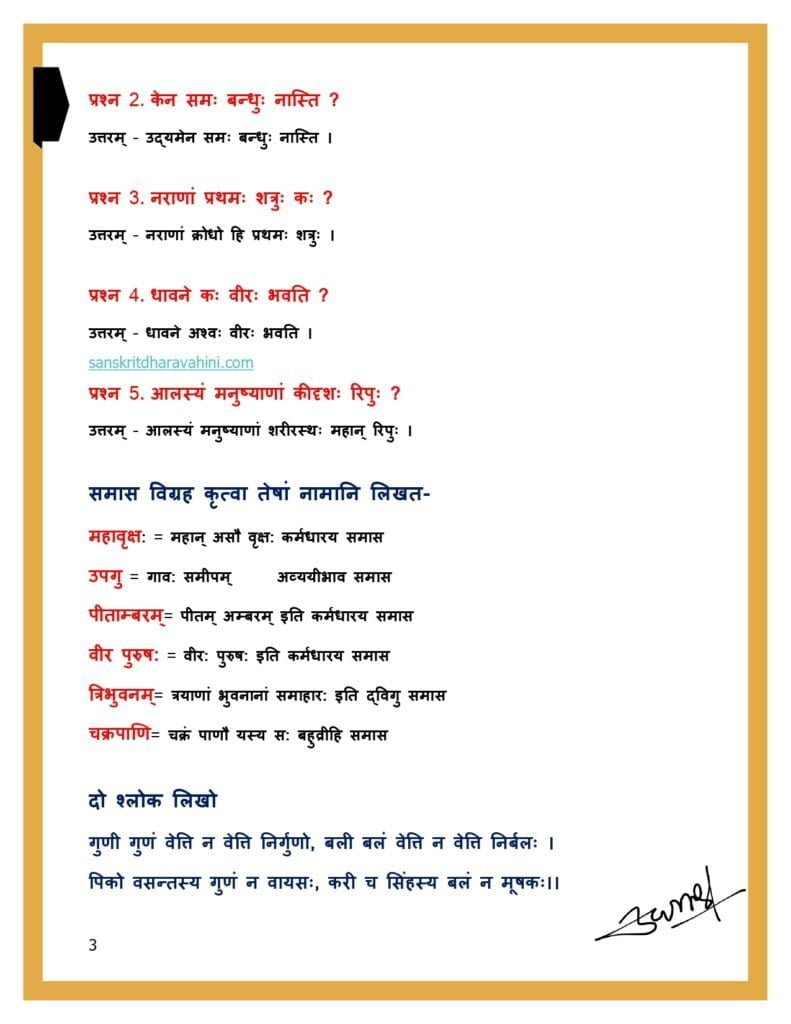 प्रश्न 2. केन समः बन्धुः नास्ति ?
उत्तरम् - उद्यमेन समः बन्धुः नास्ति ।
प्रश्न 3. नराणां प्रथमः शत्रुः कः ?
उत्तरम् - नराणां क्रोधो हि प्रथमः शत्रुः ।
प्रश्न 4. धावने कः वीरः भवति ?
उत्तरम् - धावने अश्वः वीरः भवति ।
sanskritdharavahini.com
प्रश्न 5. आलस्यं मनुष्याणां कीदृशः रिपुः ?
उत्तरम् - आलस्यं मनुष्याणां शरीरस्थः महान् रिपुः ।
समास विग्रह कृत्वा तेषां नामानि लिखत-
महावृक्ष: = महान् असौ वृक्ष: कर्मधारय समास
उपगु = गाव: समीपम् अव्ययीभाव समास
पीताम्बरम्= पीतम् अम्बरम् इति कर्मधारय समास
वीर पुरुष: = वीर: पुरुष: इति कर्मधारय समास
त्रिभुवनम्= त्रयाणां भुवनानां समाहार: इति द्विगु समास
चक्रपाणि= चक्रं पाणौ यस्य स: बहुव्रीहि समास
दो श्लोक लिखो
गुणी गुणं वेत्ति न वेत्ति निर्गुणो, बली बलं वेत्ति न वेत्ति निर्बलः ।
पिको वसन्तस्य गुणं न वायसः, करी च सिंहस्य बलं न मूषकः।।
3